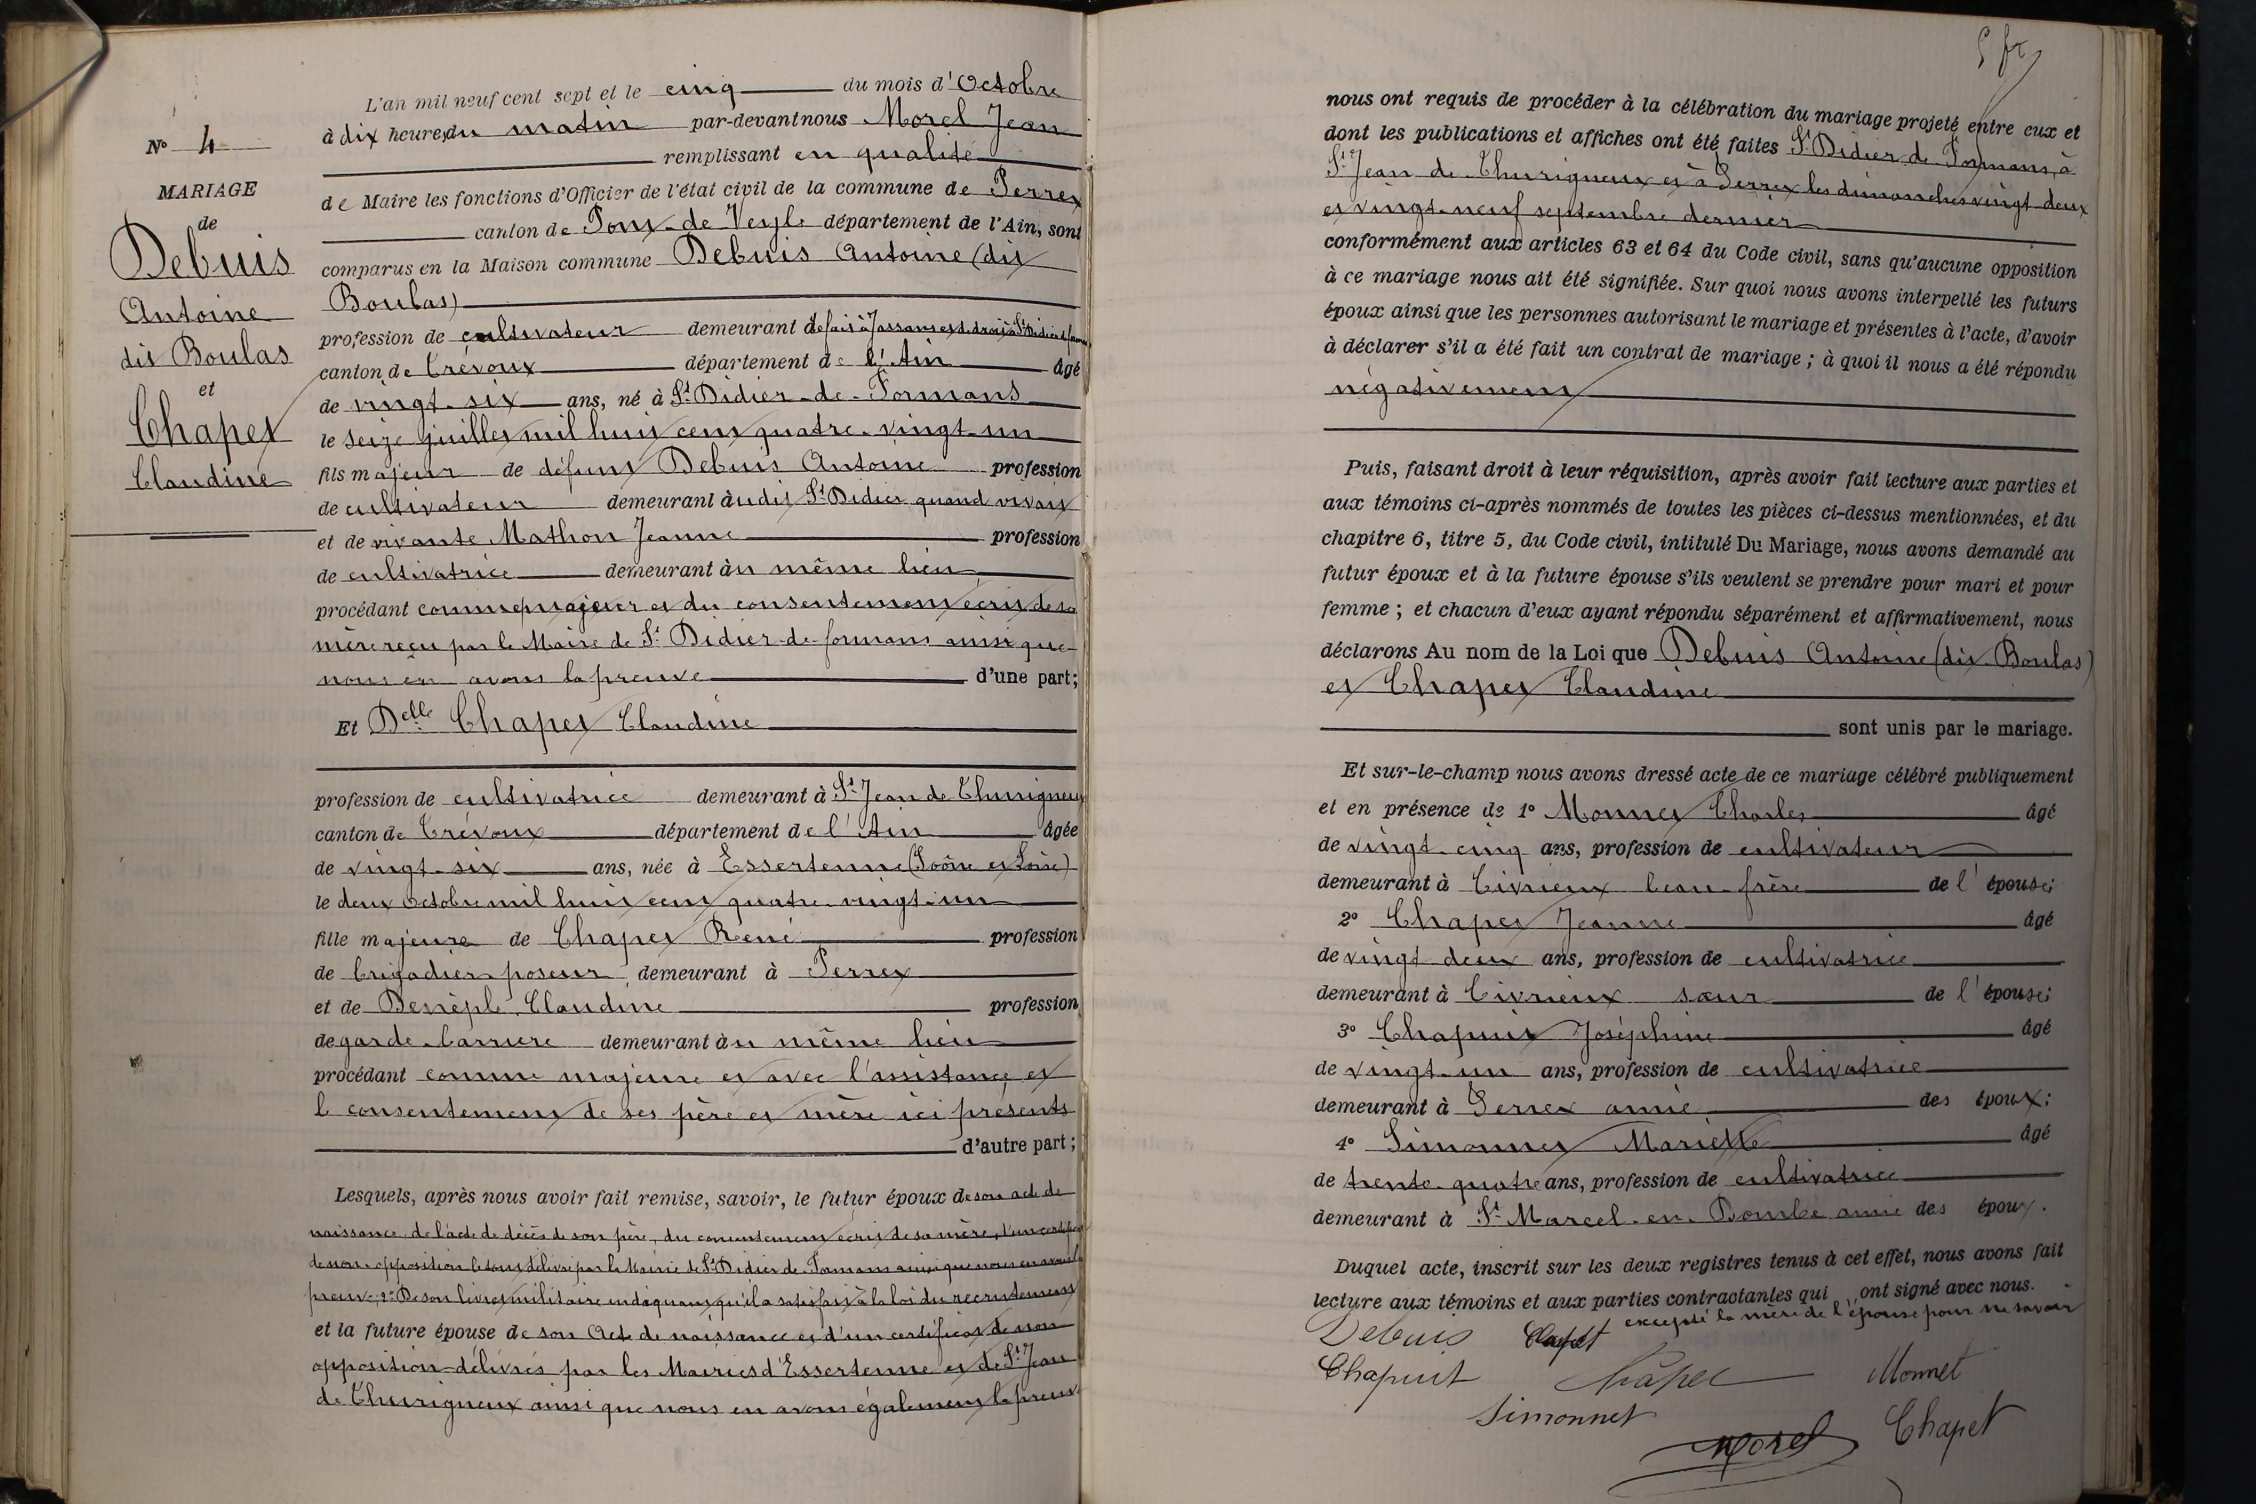 L'an mil neuf cent sept et le cinq du mois d'Octobre
à dix heures du matin par-devant nous Morel Jean
remplissant en qualité
de Maire les fonctions d'Officier de l'état civil de la commune de Perrex
canton de Pont-de-Veyle département de l'Ain, sont
comparus en la Maison commune Debuis Antoine (dit
Boulas)
profession de cultivateur demeurant de fait à Jassans et de droit à St Didier de Formans
canton de Trévoux département de l'Ain âgé
de vingt-six ans, né à St Didier-de-Formans
le seize juillet mil huit cent quatre-vingt-un
fils majeur de défunt Debuis Antoine profession
de cultivateur demeurant audit St Didier quand vivait
et de vivante Mathon Jeanne profession
de cultivatrice demeurant au même lieu
procédant comme majeur et du consentement écrit de sa
mère reçu par le Maire de St Didier-de-formans ainsi que
nous en avons la preuve d'une part;
Et Delle Chapet Claudine
profession de cultivatrice demeurant à St Jean de Thurigneux
canton de Trévoux département de l'Ain âgée
de vingt-six ans, née à Essertenne (Saône et Loire)
le deux Octobre mil huit cent quatre-vingt-un
fille majeure de Chapet René profession
de brigadier-poseur demeurant à Perrex
et de Claudine profession
de garde-barrière demeurant au même lieu
procédant comme majeure et avec l'assistance et
le consentement de ses père et mère ici présents
d'autre part;
Lesquels, après nous avoir fait remise, savoir, le futur époux de son acte de
naissance, de l'acte de décès de son père, du consentement écrit de sa mère, d'un certificat
de non-opposition le tout délivré par la Mairie de St Didier de Formans ainsi que nous en avons la
preuve, 2° De son livret militaire indiquant qu'il a satisfait à la loi du recrutement
et la future épouse de son Acte de naissance et d'un certificat de non
opposition délivrés par les Mairies d'Essertenne et de St Jean
de Thurigneux ainsi que nous en avons également la preuve
No 4
MARIAGE
de
Debuis
Antoine
dit Boulas
et
Chapet
Claudine
5 fr
nous ont requis de procéder à la célébration du mariage projeté entre eux et
dont les publications et affiches ont été faites St Didier de Formans, à
St Jean de Thurigneux et à Perrex les dimanches vingt-deux
et vingt-neuf septembre dernier
conformément aux articles 63 et 64 du Code civil, sans qu'aucune opposition
à ce mariage nous ait été signifiée. Sur quoi nous avons interpellé les futurs
époux ainsi que les personnes autorisant le mariage et présentes à l'acte, d'avoir
à déclarer s'il a été fait un contrat de mariage; à quoi il nous a été répondu
négativement
Puis, faisant droit à leur réquisition, après avoir fait lecture aux parties et
aux témoins ci-après nommés de toutes les pièces ci-dessus mentionnées, et du
chapitre 6, titre 5, du Code civil, intitulé Du Mariage, nous avons demandé au
futur époux et à la future épouse s'ils veulent se prendre pour mari et pour
femme; et chacun d'eux ayant répondu séparément et affirmativement, nous
déclarons Au nom de la Loi que Debuis Antoine (dit Boulas)
et Chapet Claudine
sont unis par le mariage.
Et sur-le-champ nous avons dressé acte de ce mariage célébré publiquement
et en présence de 1° Monnet Charles âgé
de vingt-cinq ans, profession de cultivateur
demeurant à Civrieux beau-frère de l'épouse;
2° Chapet Jeanne âgé
de vingt deux ans, profession de cultivatrice
demeurant à Civrieux sœur de l'épouse;
3° Chapuit Joséphine âgé
de vingt-un ans, profession de cultivatrice
demeurant à Perrex amie des époux;
4° Simonnet Mariette âgé
de trente-quatre ans, profession de cultivatrice
demeurant à St Marcel-en-Dombe amie des époux.
Duquel acte, inscrit sur les deux registres tenus à cet effet, nous avons fait
lecture aux témoins et aux parties contractantes qui ont signé avec nous.
excepté la mère de l'épouse pour ne savoir
Debuis Chapet
Chapuit Chapet Monnet
Simonnet
Morel Chapet